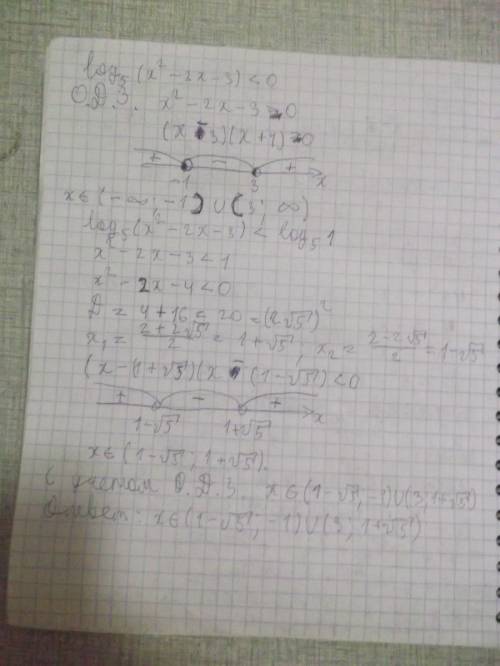 log₅(x²-2x-3)<0
О.Д.З. x²-2x-3>0
(x-3)(x+1)>0
+ - +
-1 3 x
x∈(-∞; -1)∪(3; ∞)
log₅(x²-2x-3)<log₅1
x²-2x-3<1
x²-2x-4<0
D=4+16=20=(2√5)²
x₁=(2+2√5)/2=1+√5; x₂=(2-2√5)/2=1-√5
(x-(1+√5)(x-(1-√5)<0
+ - +
1-√5 1+√5 x
x∈(1-√5; 1+√5).
С учетом О.Д.З. x∈(1-√5; -1)∪(3; 1+√5)
Ответ: x∈(1-√5; -1)∪(3; 1+√5)